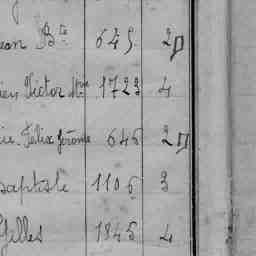 ean Bte 645 2
ien Victor Mie 1723 4
ie Felix Jérôme 646 2
Baptiste 1106 3
Gilles 1845 4